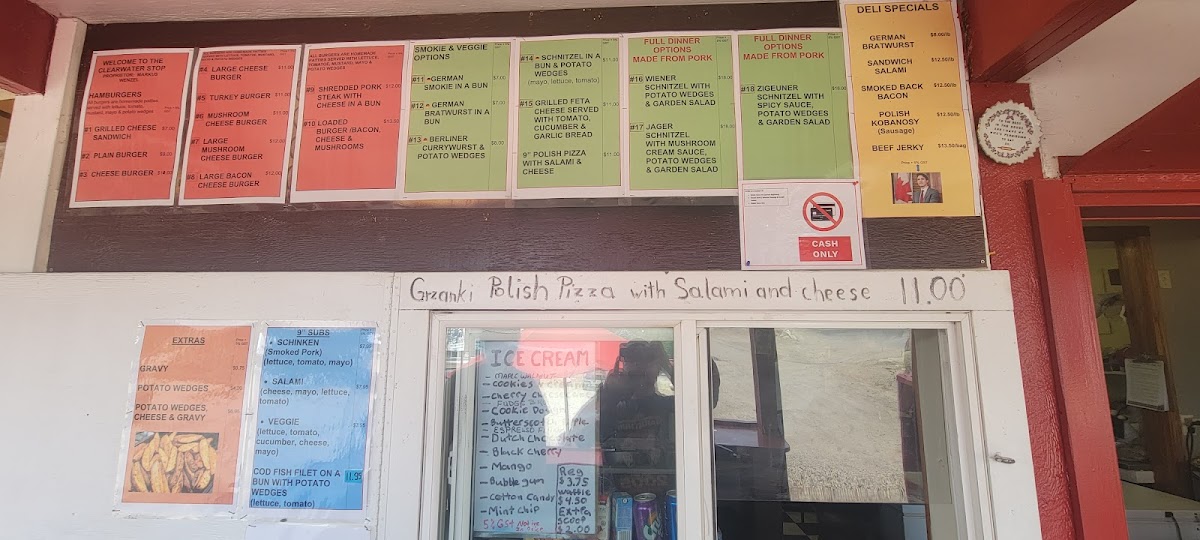 WELCOME TO THE
CLEARWATER STOP
PROPRIETOR - MARKUS
WENZEL
HAMBURGERS
#1 GRILLED CHEESE
SANDWICH
#2 PLAIN BURGER
#3 CHEESE BURGER
#4 LARGE CHEESE
BURGER
#5 TURKEY BURGER
#6 MUSHROOM
CHEESE BURGER
#7 LARGE
MUSHROOM
CHEESE BURGER
#8 LARGE BACON
CHEESE BURGER
#9 SHREDDED PORK
STEAK WITH
CHEESE IN A BUN
#10 LOADED
BURGER /BACON,
CHEESE &
MUSHROOMS
SMOKIE & VEGGIE
OPTIONS
#11 GERMAN
SMOKIE IN A BUN
#12 GERMAN
BRATWURST IN A
BUN
#13 BERLINER
CURRYWURST &
POTATO WEDGES
#14 SCHNITZEL IN A
BUN & POTATO
WEDGES
(mayo, lettuce, tomato)
#15 GRILLED FETA
CHEESE SERVED
WITH TOMATO,
CUCUMBER &
GARLIC BREAD
9" POLISH PIZZA
WITH SALAMI &
CHEESE
FULL DINNER
OPTIONS
MADE FROM PORK
#16 WIENER
SCHNITZEL WITH
POTATO WEDGES
& GARDEN SALAD
#17 JAGER
SCHNITZEL
WITH MUSHROOM
CREAM SAUCE,
POTATO WEDGES
& GARDEN SALAD
FULL DINNER
OPTIONS
MADE FROM PORK
#18 ZIGEUNER
SCHNITZEL WITH
SPICY SAUCE,
POTATO WEDGES
& GARDEN SALAD
DELI SPECIALS
GERMAN
BRATWURST
SANDWICH
SALAMI $12.50/lb
SMOKED BACK
BACON $12.50/lb
POLISH
KOBANOSY $12.50/lb
(Sausage)
BEEF JERKY $13.50/bag
CASH
ONLY
Grzanki Polish Pizza with Salami and cheese 11.00
EXTRAS
GRAVY
POTATO WEDGES
POTATO WEDGES,
CHEESE & GRAVY
9" SUBS
SCHINKEN
(Smoked Pork)
(lettuce, tomato, mayo)
SALAMI
(cheese, mayo, lettuce,
tomato)
VEGGIE
(lettuce, tomato,
cucumber, cheese,
mayo)
COD FISH FILET ON A
BUN WITH POTATO 11.99
WEDGES
(lettuce, tomato)
ICE CREAM
- Cookie
- Butterscotch
- Dutch Chocolate
- Black Cherry
- Mango
- Bubble gum
- Cotton Candy
- Mint Chip
Reg
$3.75
Waffle
$4.50
Extra
Scoop
$2.00
5% Gst